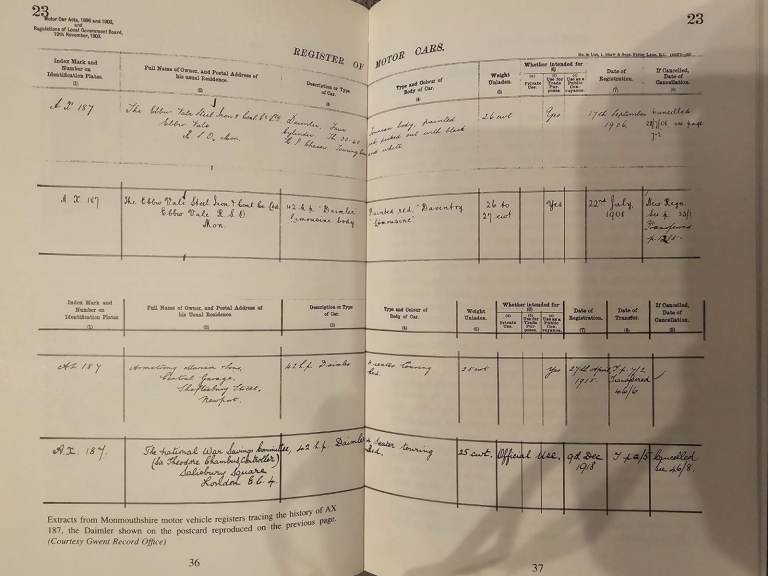 23
Motor Car Acts, 1896 and 1903,
and
Regulations of Local Government Board,
19th November, 1903.
REGISTER OF MOTOR CARS.
23
Index Mark and
Number on
Identification Plates.
(1)
Full Name of Owner, and Postal Address of
his usual Residence.
(2)
Description or Type
of Car.
(3)
Type and Colour of
Body of Car.
(4)
Weight
Unladen.
(5)
Whether intended for
(6)
(a)
Private
Use.
(b)
Use for
Trade
Pur-
poses.
(c)
Use as a
Public
Con-
veyance.
Date of
Registration.
(7)
If Cancelled,
Date of
Cancellation.
(8)
A X 187
The Ebbw Vale Steel Iron & Coal Co Ld.
Ebbw Vale
R S O, Mon.
Daimler, Four
Cylinder,
body, painted
picked out with black
and white
26 cwt
Yes
17th September
1906
Cancelled
see page
A X 187
The Ebbw Vale Steel Iron & Coal Co Ltd,
Ebbw Vale R.S.O.
Mon.
42 h.p. "Daimler"
limousine body.
Painted red, "Daventry
Limousine"
26 to
27 cwt
Yes
22nd July,
1908
New Regn.
See p.
Transferred
Index Mark and
Number on
Identification Plates
(1)
Full Name of Owner, and Postal Address of
his Usual Residence.
(2)
Description or Type
of Car.
(3)
Type and Colour of
Body of Car.
(4)
Weight
Unladen.
(5)
Whether intended for
(6)
(a)
Private
Use.
(b)
Use for
Trade
Pur-
poses.
(c)
Use as a
Public
Con-
veyance.
Date of
Registration.
(7)
Date of
Transfer.
(8)
If Cancelled,
Date of
Cancellation.
(9)
AX 187
Armstrong & Sons,
Central Garage,
Shaftesbury Street,
Newport.
42 h.p. Daimler
seater touring
Red.
25 cwt
Yes
27th April
1915
Transferred
46/6
A.X. 187.
The National War Savings Committee,
(Sir Theodore Chambers Controller)
Salisbury Square
London E.C. 4.
42 h.p. Daimler
seater touring
Red.
25 cwt.
Official Use.
9th Dec
1918
Cancelled
see 46/8.
Extracts from Monmouthshire motor vehicle registers tracing the history of AX
187, the Daimler shown on the postcard reproduced on the previous page.
(Courtesy Gwent Record Office)
36
37